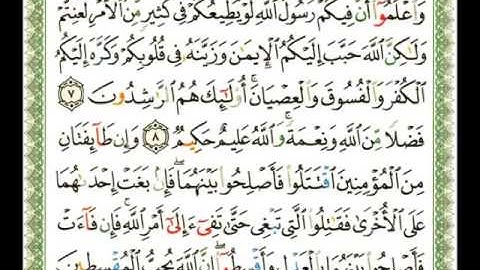 وَٱعۡلَمُوٓاْ أَنَّ فِيكُمۡ رَسُولَ ٱللَّهِۚ لَوۡ يُطِيعُكُمۡ فِي كَثِيرٖ مِّنَ ٱلۡأَمۡرِ لَعَنِتُّمۡ
وَلَٰكِنَّ ٱللَّهَ حَبَّبَ إِلَيۡكُمُ ٱلۡإِيمَٰنَ وَزَيَّنَهُۥ فِي قُلُوبِكُمۡ وَكَرَّهَ إِلَيۡكُمُ
ٱلۡكُفۡرَ وَٱلۡفُسُوقَ وَٱلۡعِصۡيَانَۚ أُوْلَٰٓئِكَ هُمُ ٱلرَّٰشِدُونَ ٧
فَضۡلٗا مِّنَ ٱللَّهِ وَنِعۡمَةٗۚ وَٱللَّهُ عَلِيمٌ حَكِيمٞ ٨ وَإِن طَآئِفَتَانِ
مِنَ ٱلۡمُؤۡمِنِينَ ٱقۡتَتَلُواْ فَأَصۡلِحُواْ بَيۡنَهُمَاۖ فَإِنۢ بَغَتۡ إِحۡدَىٰهُمَا
عَلَى ٱلۡأُخۡرَىٰ فَقَٰتِلُواْ ٱلَّتِي تَبۡغِي حَتَّىٰ تَفِيٓءَ إِلَىٰٓ أَمۡرِ ٱللَّهِۚ فَإِن فَآءَتۡ
فَأَصۡلِحُواْ بَيۡنَهُمَا بِٱلۡعَدۡلِ وَأَقۡسِطُوٓاْۖ إِنَّ ٱللَّهَ يُحِبُّ ٱلۡمُقۡسِطِينَ